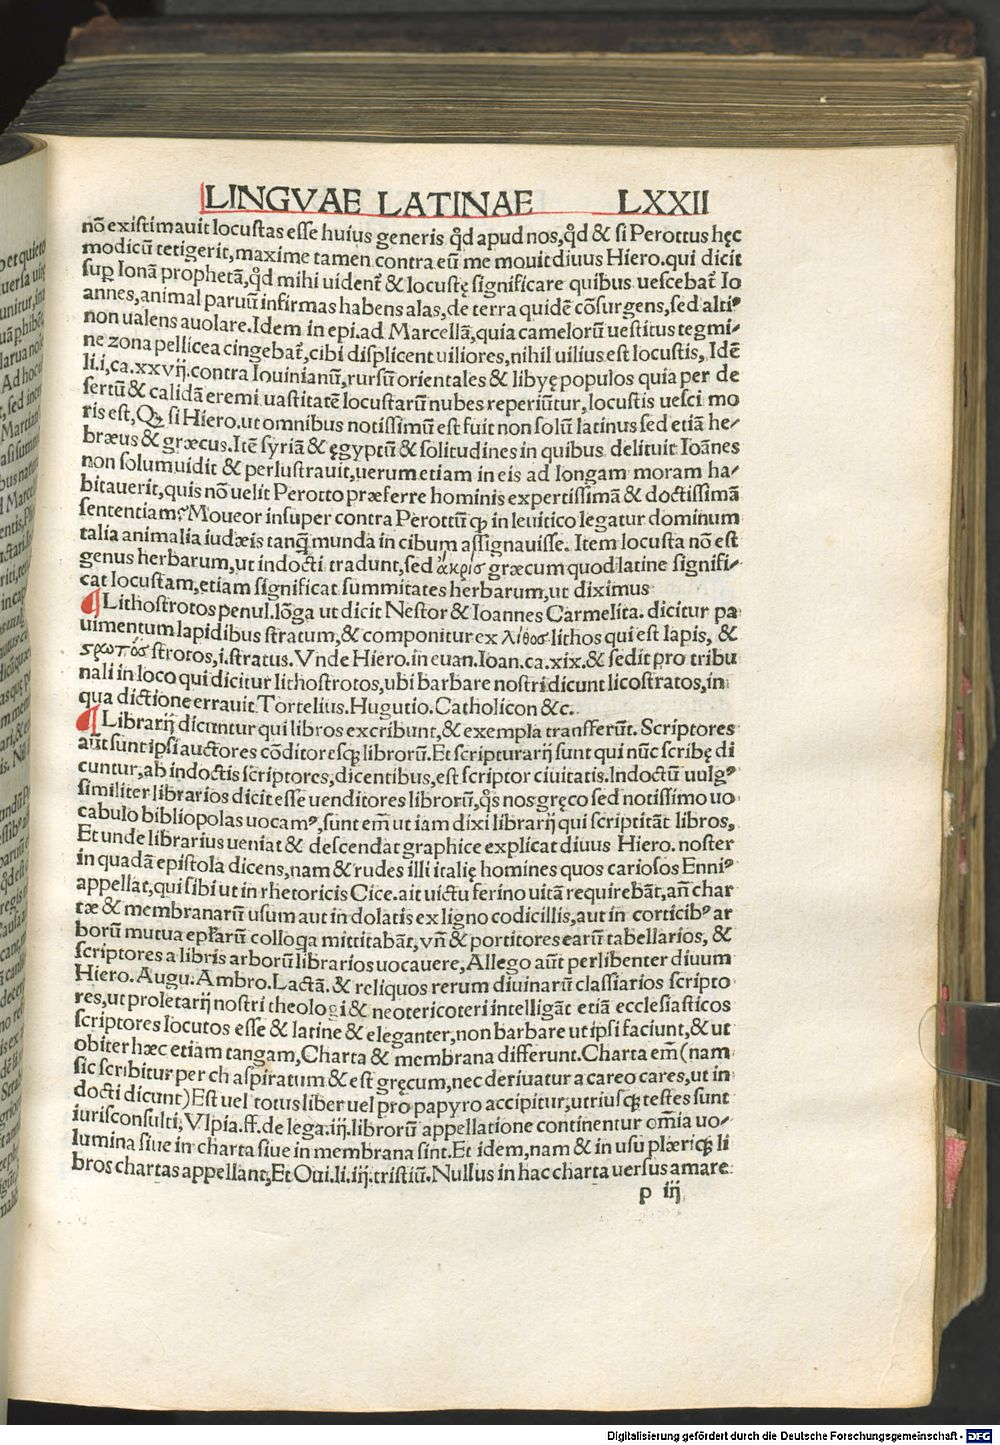 LINGVAE LATINAE LXXII
nõ existimauit locustas esse huius generis qd̃ apud nos, qd̃ & si Perottus hęc
modicũ tetigerit, maxime tamen contra eũ me mouit diuus Hiero. qui dicit
sup Ionã prophetã, qd̃ mihi uident̃ & locustę significare quibus uescebat̃ Io
annes, animal paruũ infirmas habens alas, de terra quidẽ cõsurgens, sed altiꝰ
non ualens auolare. Idem in epi. ad Marcellã, quia camelorũ uestitus tegmi⸗
ne zona pellicea cingebat̃, cibi displicent uiliores, nihil uilius est locustis, Idẽ
li. i, ca. xxvij. contra Iouinianũ, rursũ orientales & libyę populos quia per de
sertũ & calidã eremi uastitatẽ locustarũ nubes reperiũtur, locustis uesci mo
ris est, Qꝫ si Hiero. ut omnibus notissimũ est fuit non solũ latinus sed etiã he⸗
bræus & græcus. Itẽ syriã & ęgyptũ & solitudines in quibus delituit Ioãnes
non solum uidit & perlustrauit, uerum etiam in eis ad longam moram ha⸗
bitauerit, quis nõ uelit Perotto præferre hominis expertissimã & doctissimã
sententiam? Moueor insuper contra Perottũ ꝙ in leuitico legatur dominum
talia animalia iudæis tanꝗ munda in cibum assignauisse. Item locusta nõ est
genus herbarum, ut indocti tradunt, sed ἀκρὶσ græcum quod latine signifi⸗
cat locustam, etiam significat summitates herbarum, ut diximus
¶ Lithostrotos penul. lõga ut dicit Nestor & Ioannes Carmelita. dicitur pa
uimentum lapidibus stratum, & componitur ex λίθοσ lithos qui est lapis, &
ϛρωτὸσ strotos, i. stratus. Vnde Hiero. in euan. Ioan. ca. xix. & sedit pro tribu
nali in loco qui dicitur lithostrotos, ubi barbare nostri dicunt licostratos, in
qua dictione errauit Tortelius. Hugutio. Catholicon &c.
¶ Librarij dicuntur qui libros excribunt, & exempla transferũt. Scriptores
aũt sunt ipsi auctores cõditoresꝗ librorũ. Et scripturarij sunt qui nũc scribę di
cuntur, ab indoctis scriptores, dicentibus, est scriptor ciuitatis. Indoctũ uulgꝰ
similiter librarios dicit esse uenditores librorũ, q̃s nos gręco sed notissimo uo
cabulo bibliopolas uocamꝰ, sunt em̃ ut iam dixi librarij qui scriptitãt libros,
Et unde librarius ueniat & descendat graphice explicat diuus Hiero. noster
in quadã epistola dicens, nam & rudes illi italię homines quos cariosos Enniꝰ
appellat, qui sibi ut in rhetoricis Cice. ait uictu ferino uitã requirebãt, añ char
tæ & membranarũ usum aut in dolatis ex ligno codicillis, aut in corticibꝰ ar
borũ mutua ep̃larũ colloqa mittitabãt, vñ & portitores earũ tabellarios, &
scriptores a libris arborũ librarios uocauere, Allego aũt perlibenter diuum
Hiero. Augu. Ambro. Lactã. & reliquos rerum diuinarũ classiarios scripto
res, ut proletarij nostri theologi & neotericoteri intelligãt etiã ecclesiasticos
scriptores locutos esse & latine & eleganter, non barbare ut ipsi faciunt, & ut
obiter hæc etiam tangam, Charta & membrana differunt. Charta em̃ (nam
sic scribitur per ch aspiratum & est gręcum, nec deriuatur a careo cares, ut in
docti dicunt) Est uel totus liber uel pro papyro accipitur, utriusꝗ testes sunt
iurisconsulti, Vlpia. ff. de lega. iij. librorũ appellatione continentur om̃ia uo⸗
lumina siue in charta siue in membrana sint. Et idem, nam & in usu plæriꝗ li
bros chartas appellant, Et Oui. li. iij. tristiũ. Nullus in hac charta uersus amare
p iij
Digitalisierung gefördert durch die Deutsche Forschungsgemeinschaft - DFG